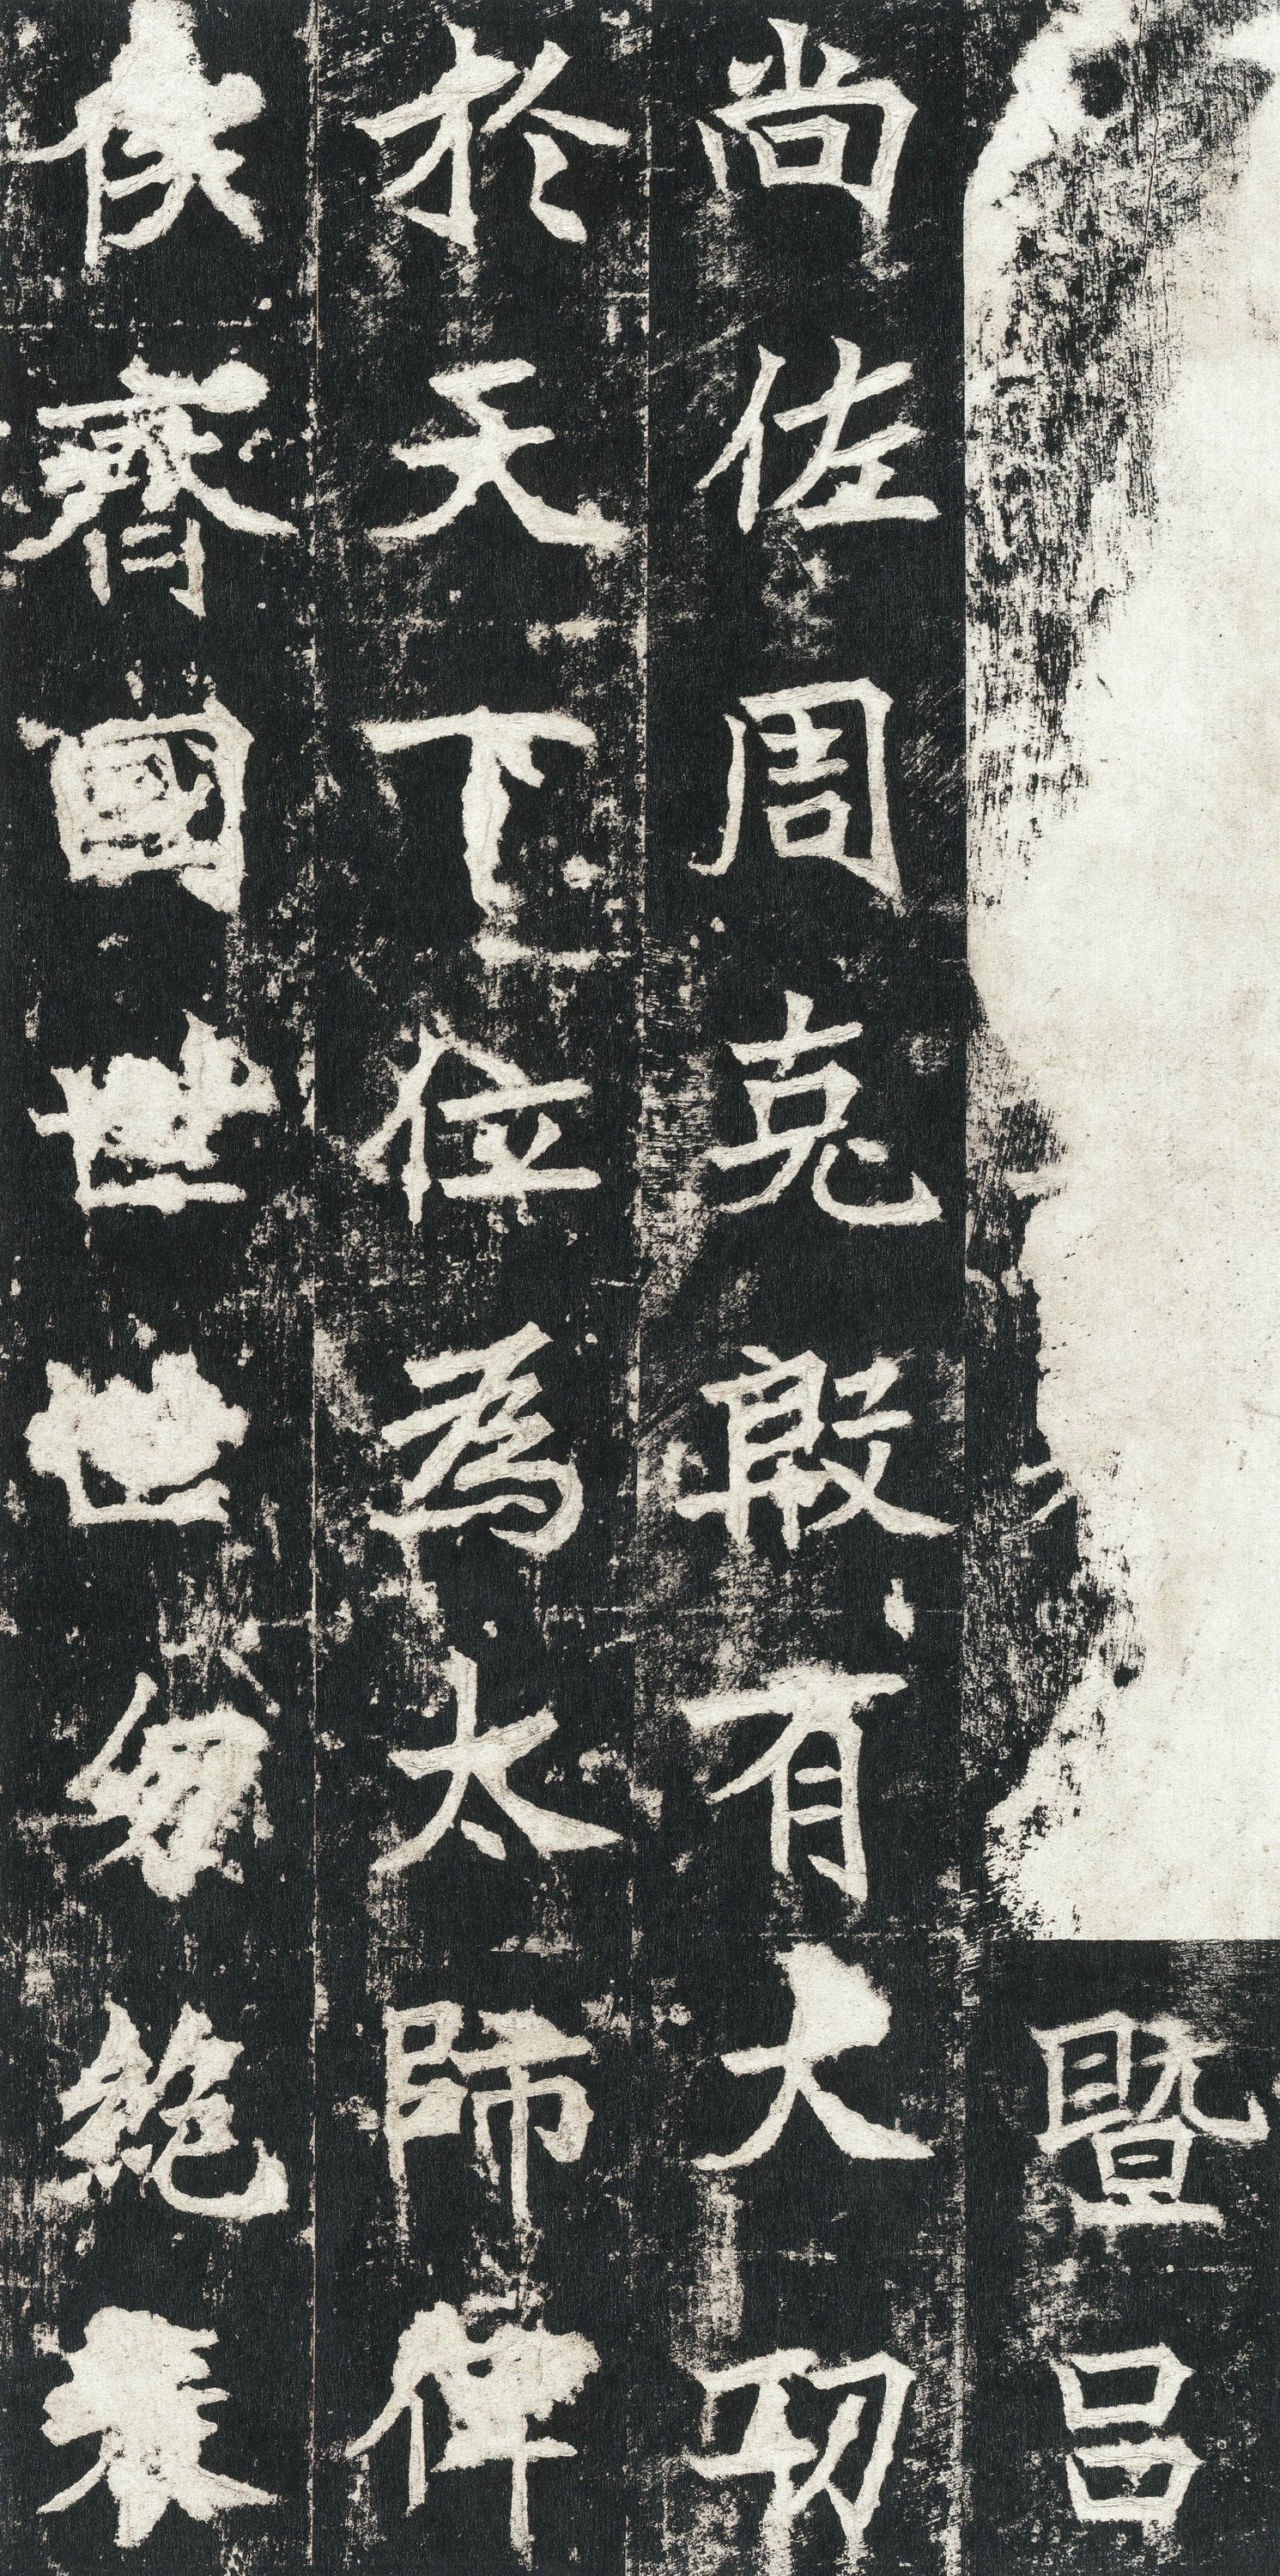 暨呂
尚佐周克殷有大功
於天下位為太師俾
侯齊國世世勿絕表